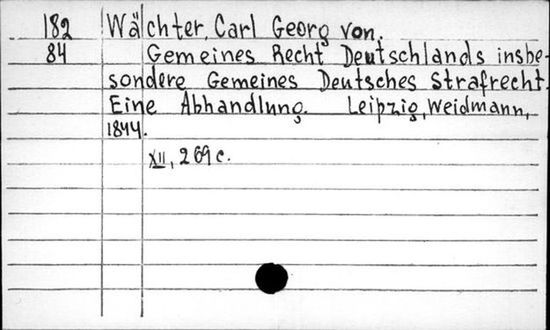 182 Wächter, Carl Georg von.
84 Gemeines Recht Deutschlands insbe-
sondere Gemeines Deutsches Strafrecht.
Eine Abhandlung. Leipzig, Weidmann,
1844.
XII, 269 c.